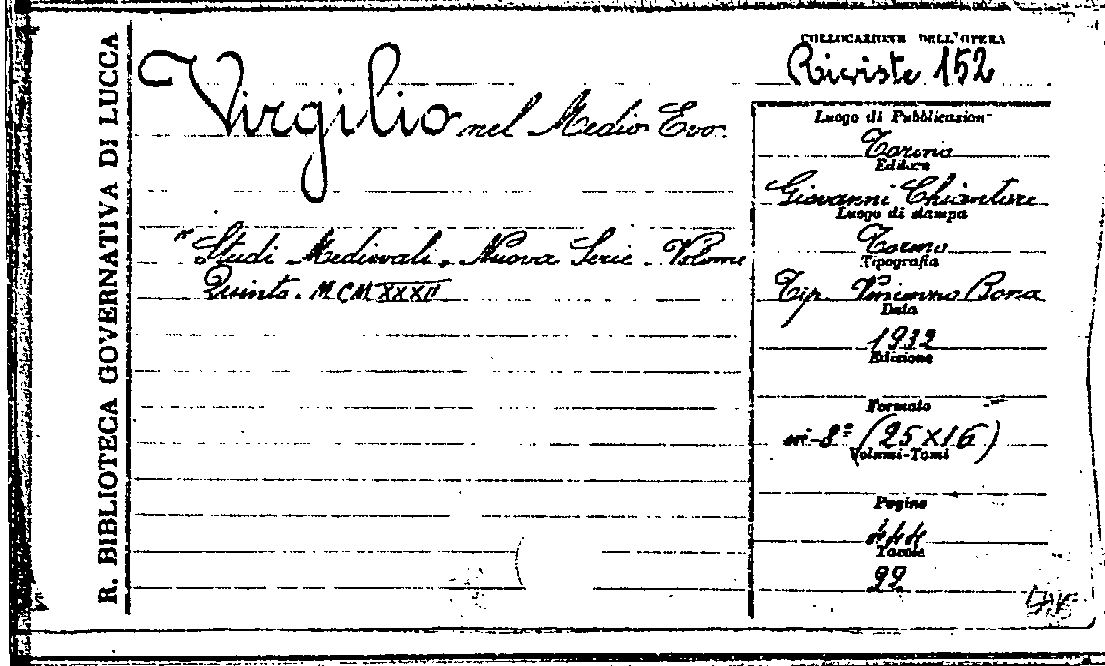 R. BIBLIOTECA GOVERNATIVA DI LUCCA
Virgilio nel Medio Evo.
"Studi Medievali. Nuova Serie. Volume
Quinto. MCMXXXII
COLLOCAZIONE DELL'OPERA
Riviste 152
Luogo di Pubblicazion
Torino
Editore
Giovanni Chiantore
Luogo di stampa
Torino
Tipografia
Tip. Vincenzo Bona
Data
1932
Edizione
Formato
in-8º (25×16)
Volumi-Tomi
Pagine
444
Tavole
22